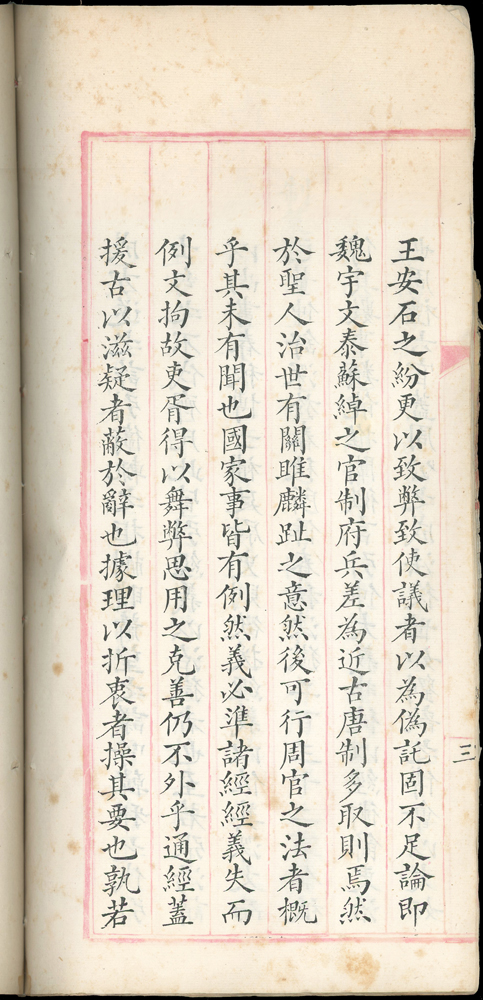 王安石之紛更以致弊致使議者以為偽託固不足論即
魏宇文泰蘇綽之官制府兵差為近古唐制多取則焉然
於聖人治世有關雎麟趾之意然後可行周官之法者概
乎其未有聞也國家事皆有例然義必準諸經經義失而
例文拘故吏胥得以舞弊思用之克善仍不外乎通經蓋
援古以滋疑者蔽於辭也據理以折衷者操其要也孰若
三